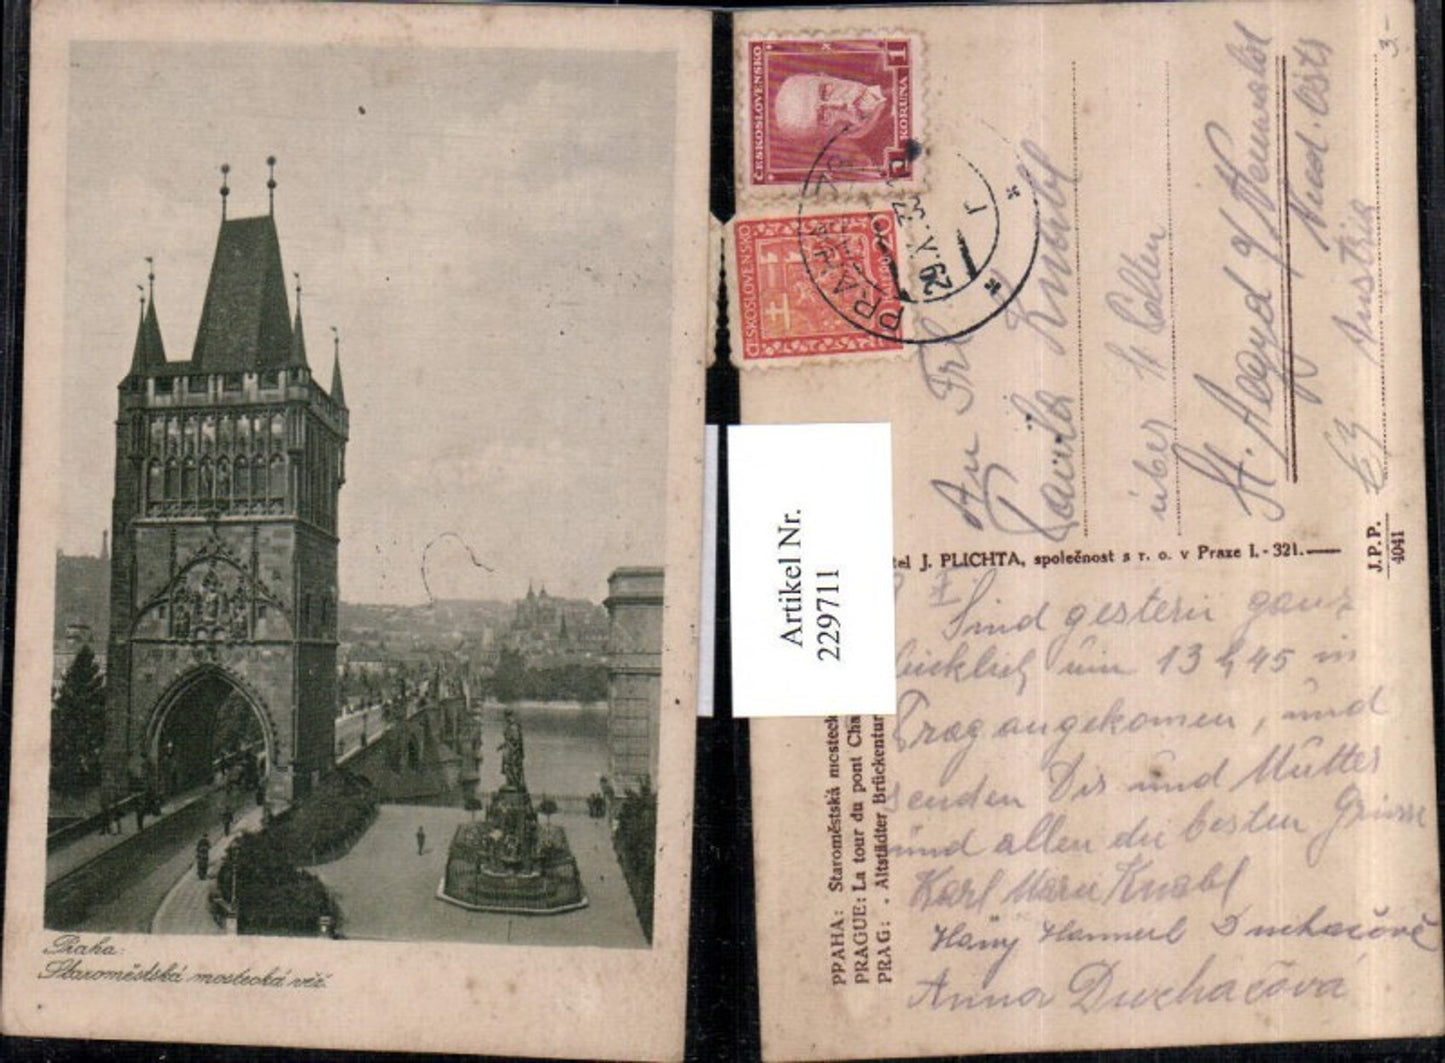 Praha:
Staroměstská mostecká věž.
ČESKOSLOVENSKO
1 KORUNA 1
ČESKOSLOVENSKO
20
PRAHA
29.V.33
1
3.-
An Frl.
Paula Knabl
über St Pölten
St. Aegyd a/ Neuwald
Nied. Östr
Austria
Artikel Nr.
229711
tel J. PLICHTA, společnost s r. o. v Praze I. - 321.
J.P.P.
4041
PRAHA: Staroměstská mosteck
PRAGUE: La tour du pont Cha
PRAG: . Altstädter Brückentur
Sind gestern ganz
glücklich um 13 h 45 in
Prag angekomen, und
senden Dir und Mutter
und allen die besten Grüsse
Karl Marie Knabl
Hansy Hannerl Duchačově
Anna Duchačová